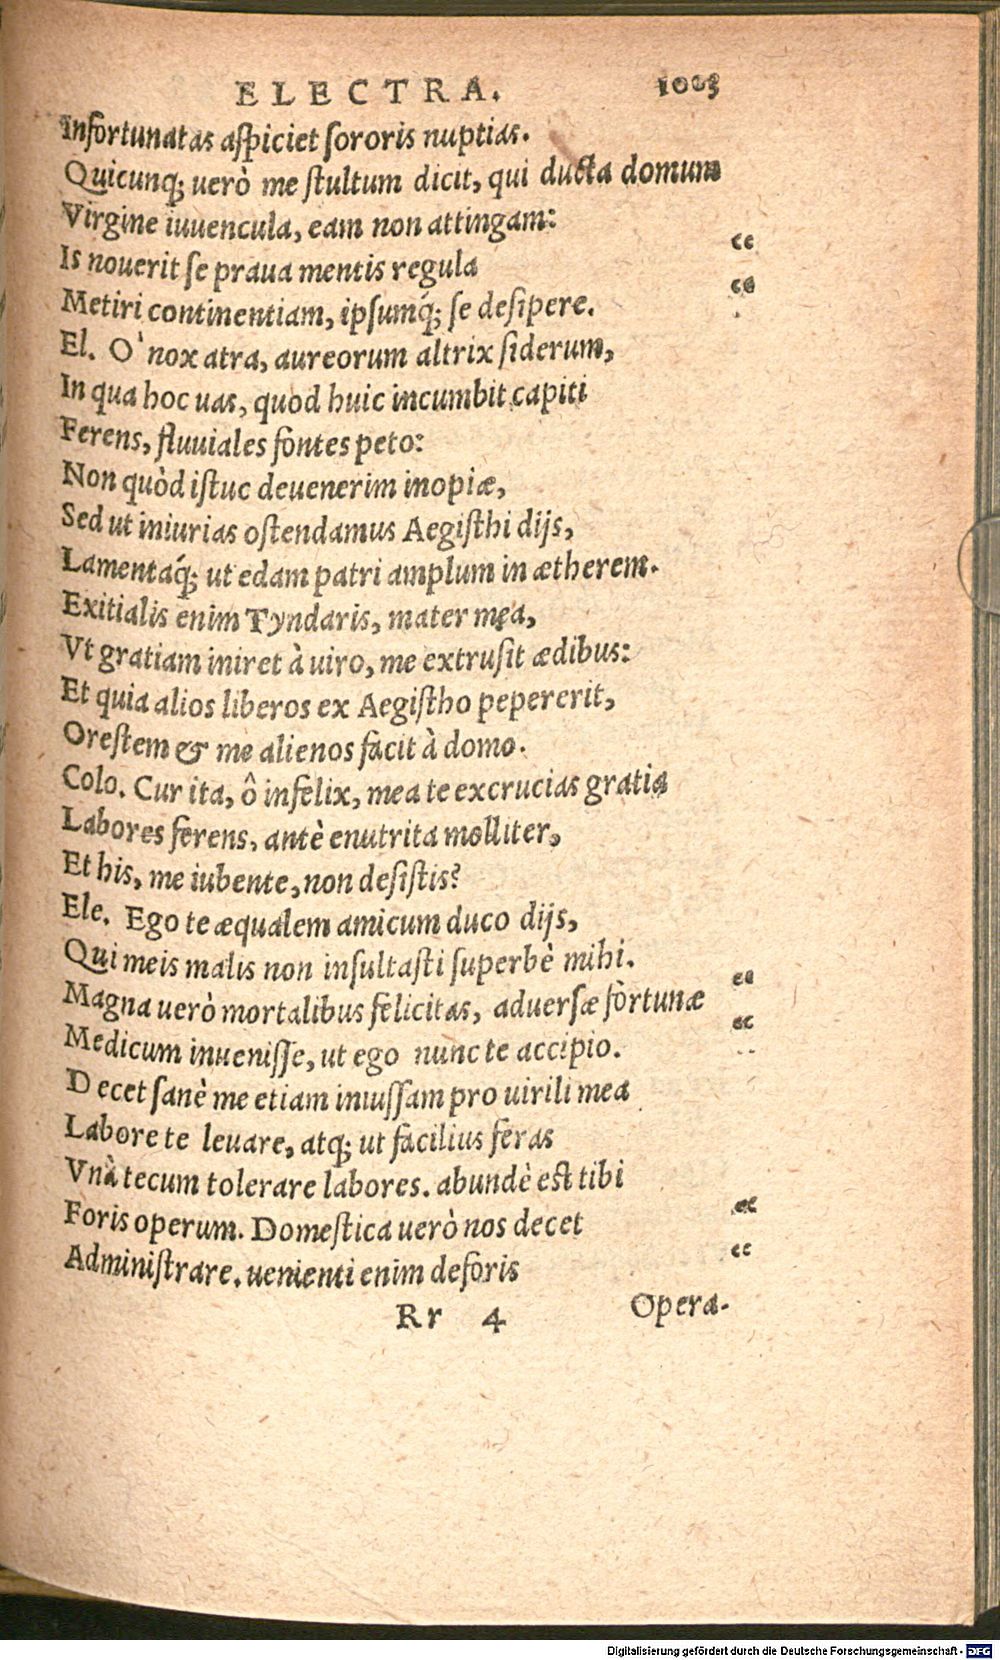 ELECTRA. 1003
Infortunatas aſpiciet ſororis nuptias.
Quicunq; uerò me ſtultum dicit, qui ducta domum
Virgine iuuencula, eam non attingam:
Is nouerit ſe praua mentis regula “
Metiri continentiam, ipſumq́; ſe deſipere. “
El. O' nox atra, aureorum altrix ſiderum,
In qua hoc uas, quod huic incumbit capiti
Ferens, fluuiales fontes peto:
Non quòd iſtuc deuenerim inopiæ,
Sed ut iniurias oſtendamus Aegiſthi dijs,
Lamentaq́; ut edam patri amplum in ætherem.
Exitialis enim Tyndaris, mater mea,
Vt gratiam iniret à uiro, me extruſit ædibus:
Et quia alios liberos ex Aegiſtho pepererit,
Oreſtem & me alienos facit à domo.
Colo. Cur ita, ô infelix, mea te excrucias gratia
Labores ferens, antè enutrita molliter,
Et his, me iubente, non deſiſtis?
Ele. Ego te æqualem amicum duco dijs,
Qui meis malis non inſultaſti ſuperbè mihi.
Magna uerò mortalibus felicitas, aduerſæ fortunæ “
Medicum inueniſſe, ut ego nunc te accipio. “
Decet ſanè me etiam iniuſſam pro uirili mea
Labore te leuare, atq; ut facilius feras
Vnà tecum tolerare labores. abundè eſt tibi
Foris operum. Domeſtica uerò nos decet “
Adminiſtrare. uenienti enim deforis “
Rr 4 Opera-
Digitalisierung gefördert durch die Deutsche Forschungsgemeinschaft - DFG